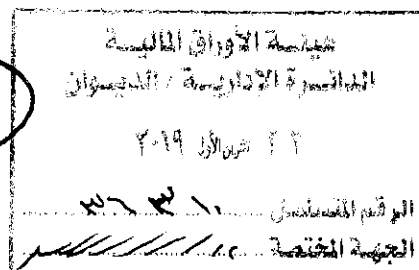 هيئة الأوراق المالية
الدائرة الإدارية / الديوان
٢٢ تشرين الأول ٢٠١٩
الرقم المتسلسل
الجهة المختصة